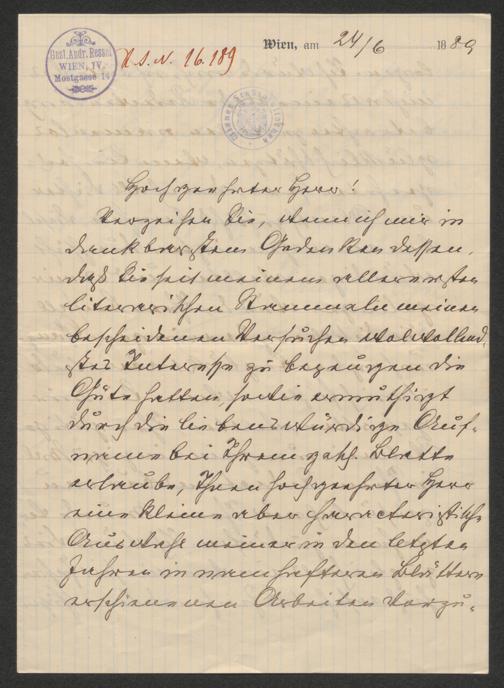 Gust. Andr. Ressel
WIEN, IV.
Mostgasse 14
H. I. N. 16.189
Wien, am 24/6 1889
Hochgeehrter Herr!
Verzeihen Sie, wenn ich mir in
dankbarstem Gedenken dessen,
daß Sie seit meinem allerersten
literarischen Stammeln meinen
bescheidenen Versuchen wolwollend-
stes Interesse zu bezeugen die
Güte hatten, sowie ermuthigt
durch die liebenswürdige Auf-
name bei Ihrem gesch. Blatte
erlaube, Ihnen hochgeehrter Herr
eine kleine aber characteristische
Auswahl meiner in den letzten
Jahren in namhafteren Blättern
erschienenen Arbeiten vorzu-